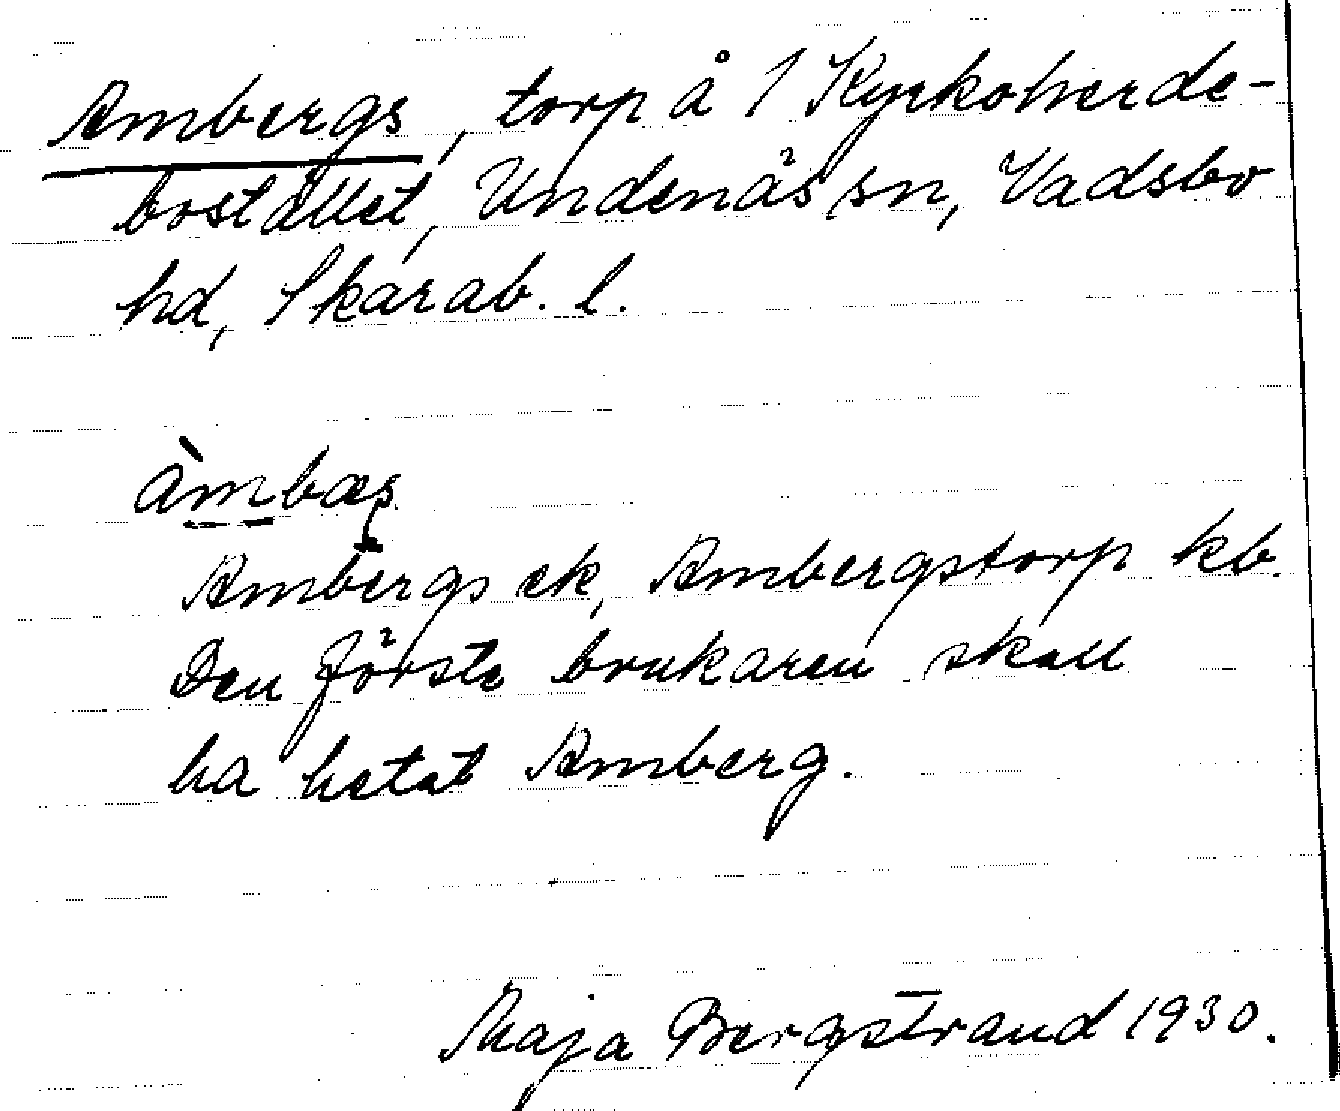 Ambergs, torp å 1 Kyrkoherde-
bostället, Undenäs sn, Vadsbo
hd, Skarab. l.
àmbæş
Ambergs ek, Ambergstorp kb.
Den förste brukaren skall
ha hetat Amberg.
Maja Bergstrand 1930.